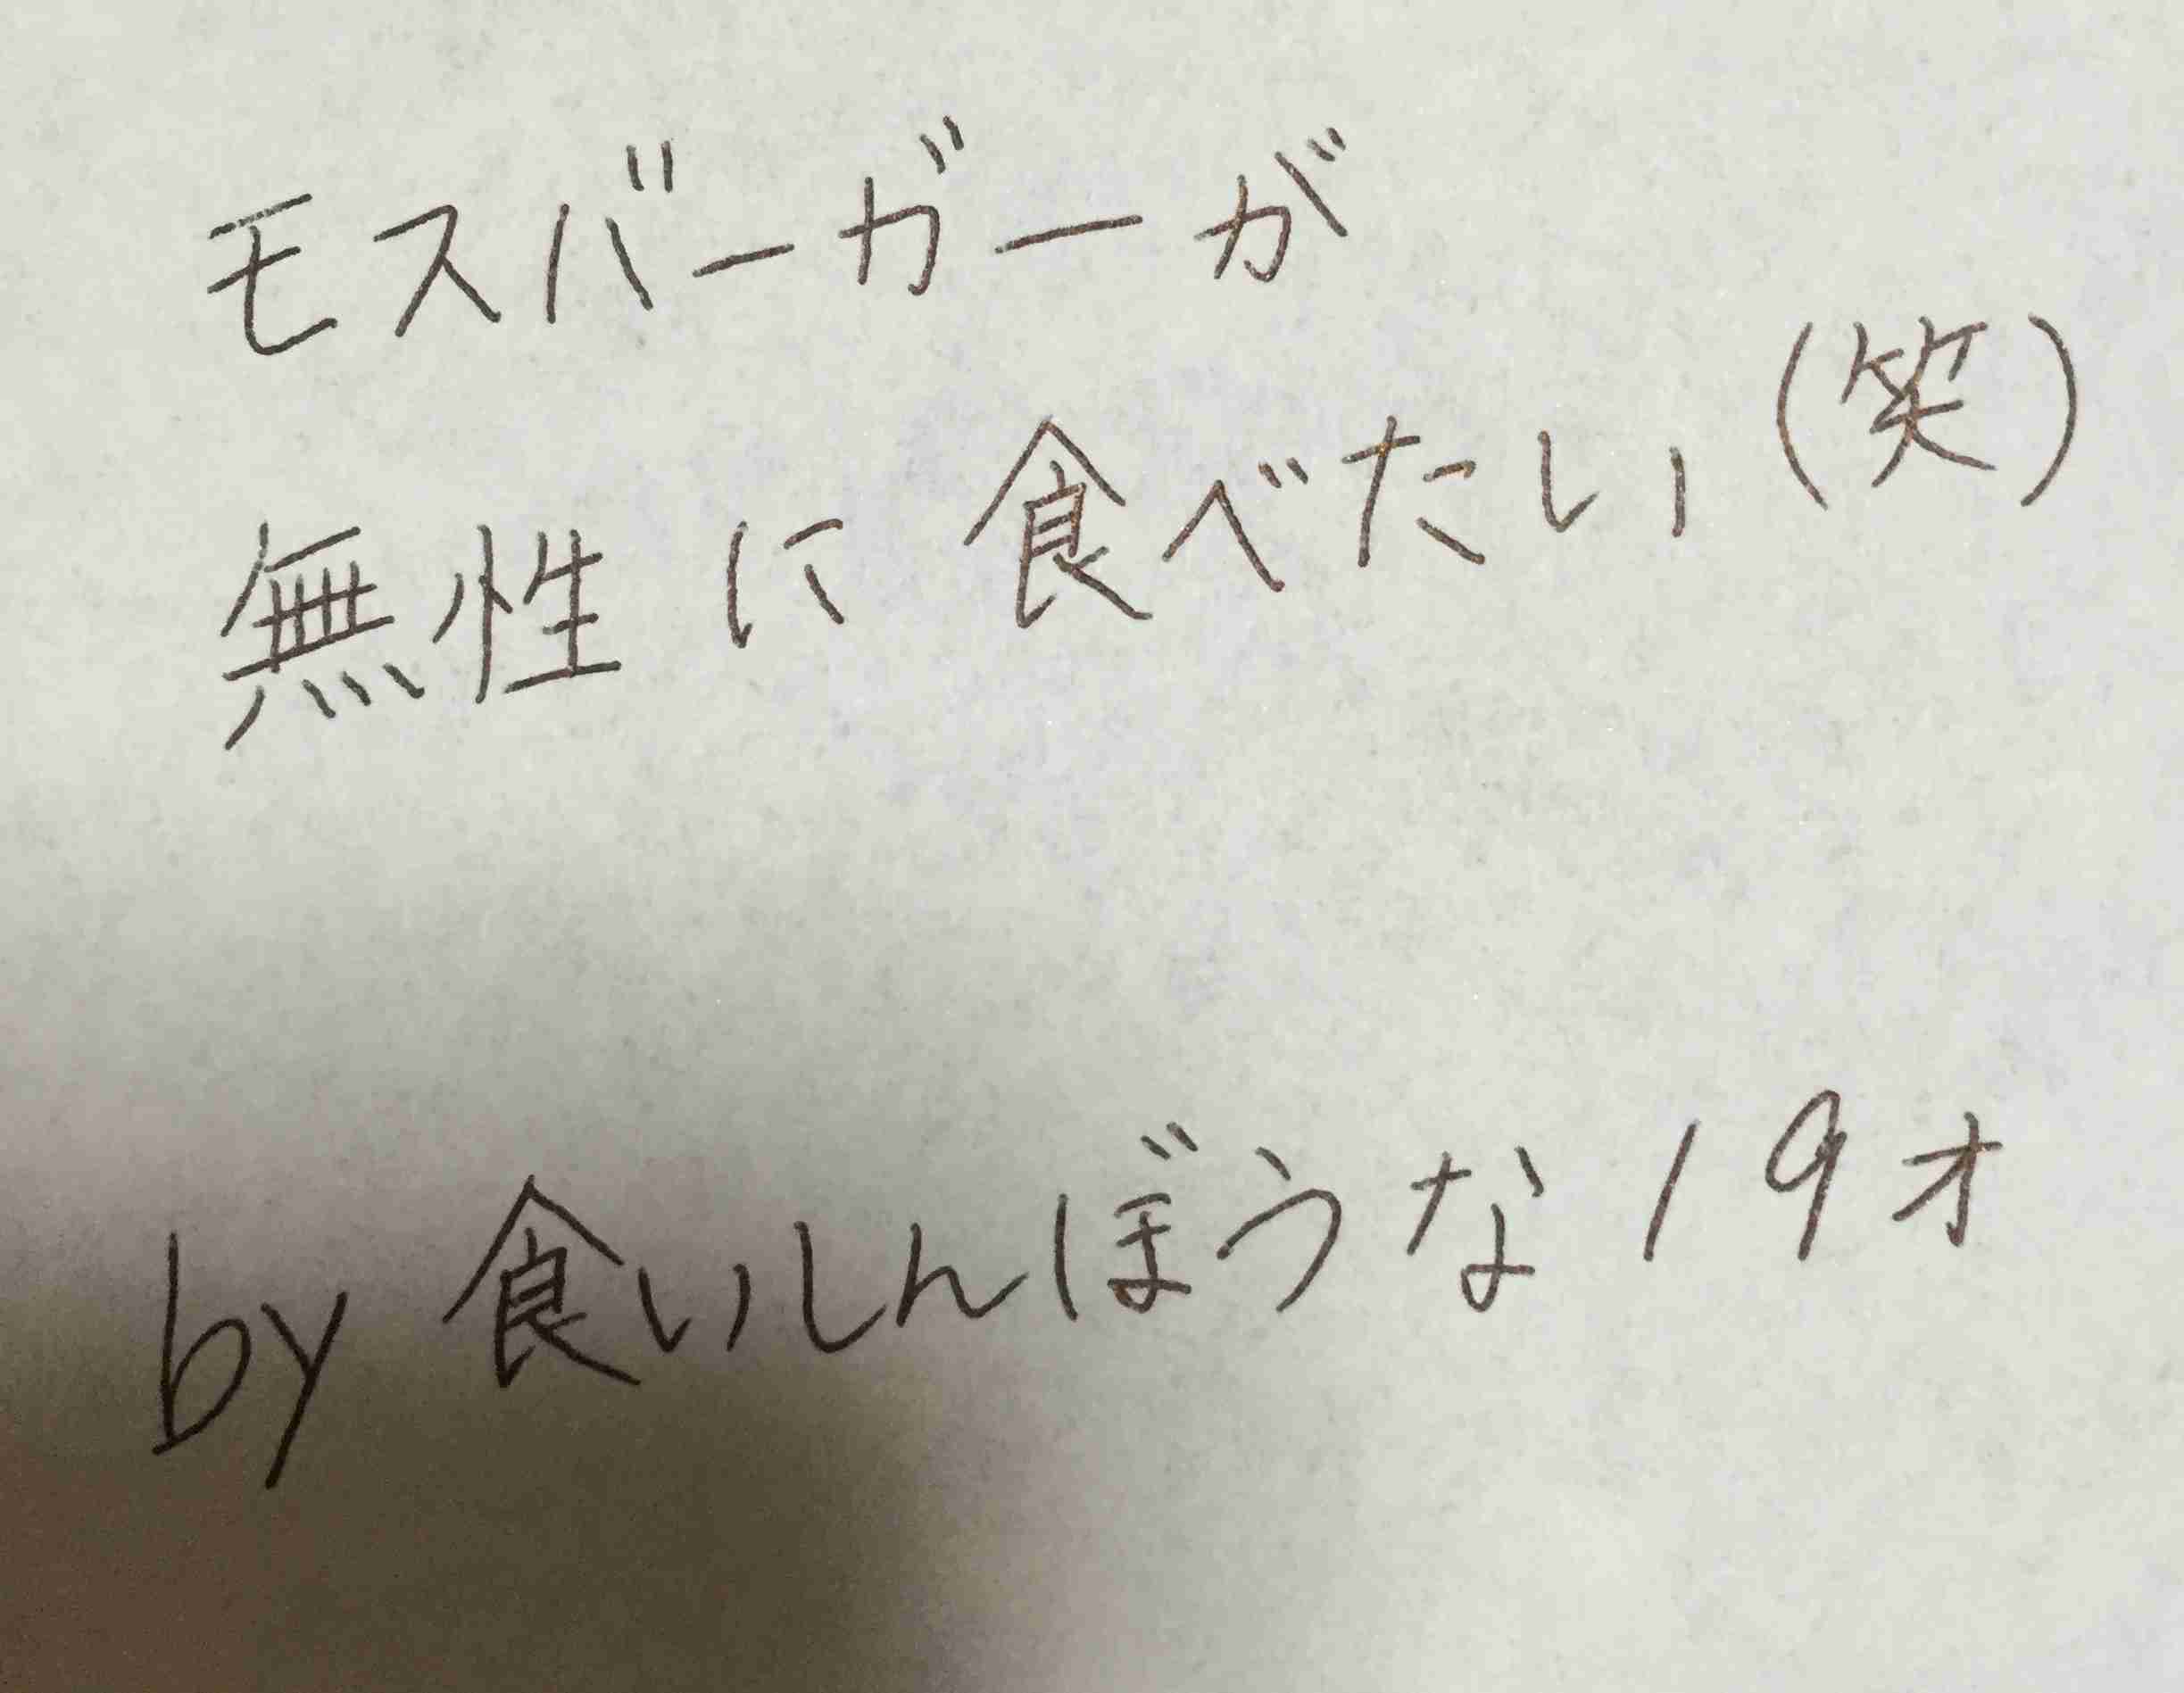 モスバーガーが
無性に食べたい(笑)
by 食いしんぼうな19才